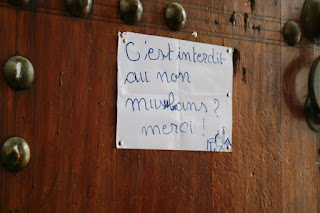 C'est interdit
au non
musulmans ?
merci !